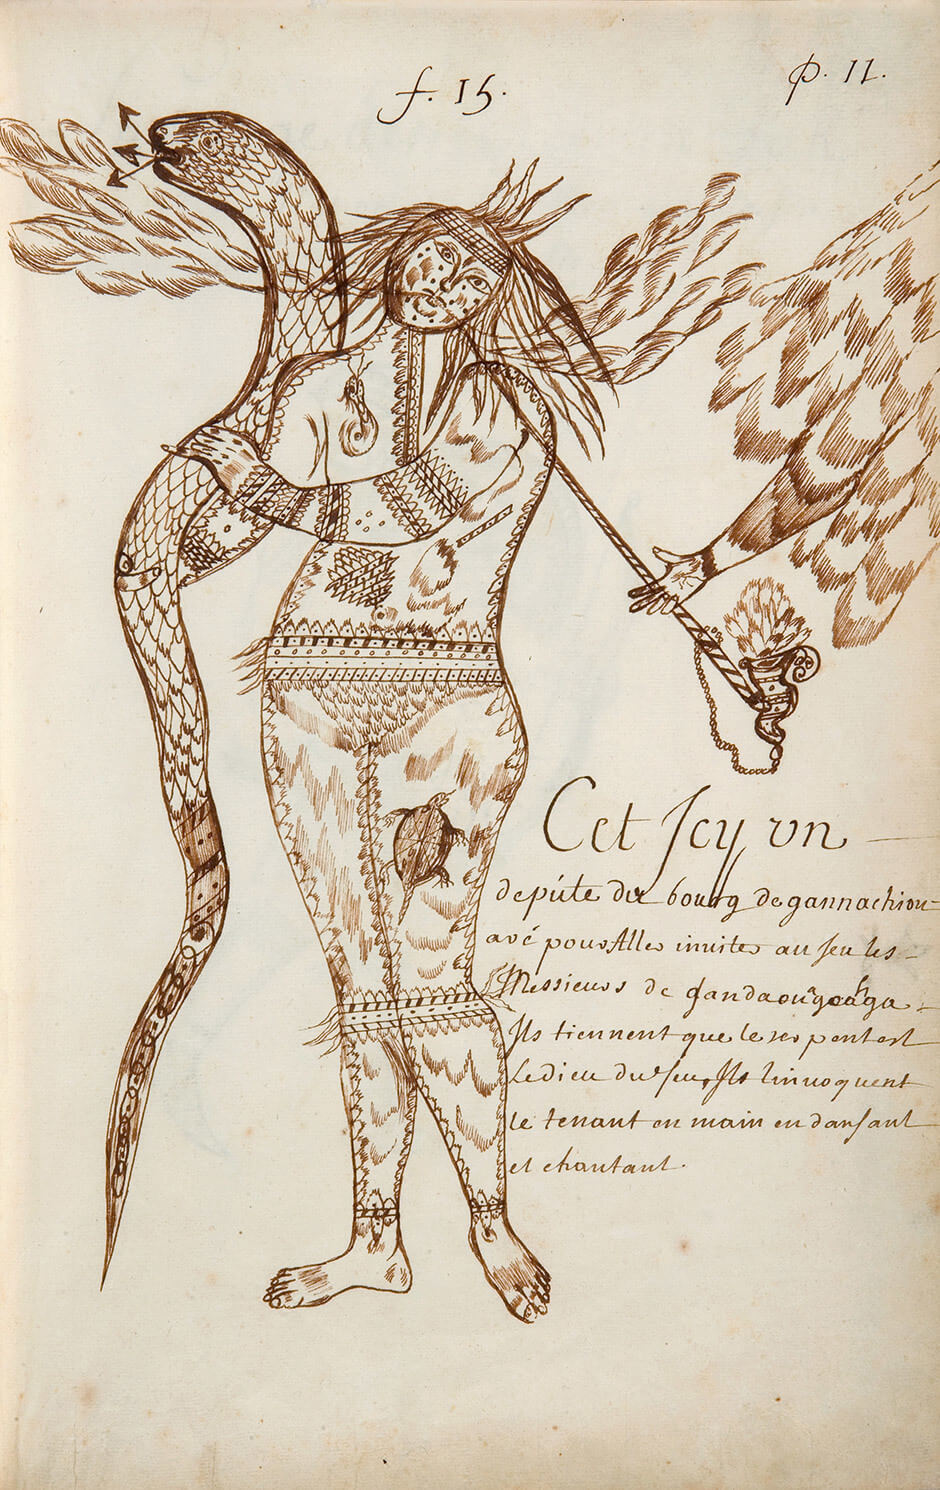 f. 15.
p. 11.
Cet Jcy un
depúte du bourg de gannachiou-
avé pour Aller inuiter au Jeu les
Messieurs de gandaouagoahga.
Ils tiennent que le serpent est
Le dieu du feu, Ils Linuoquent
le tenant en main en dansant
et chantant.